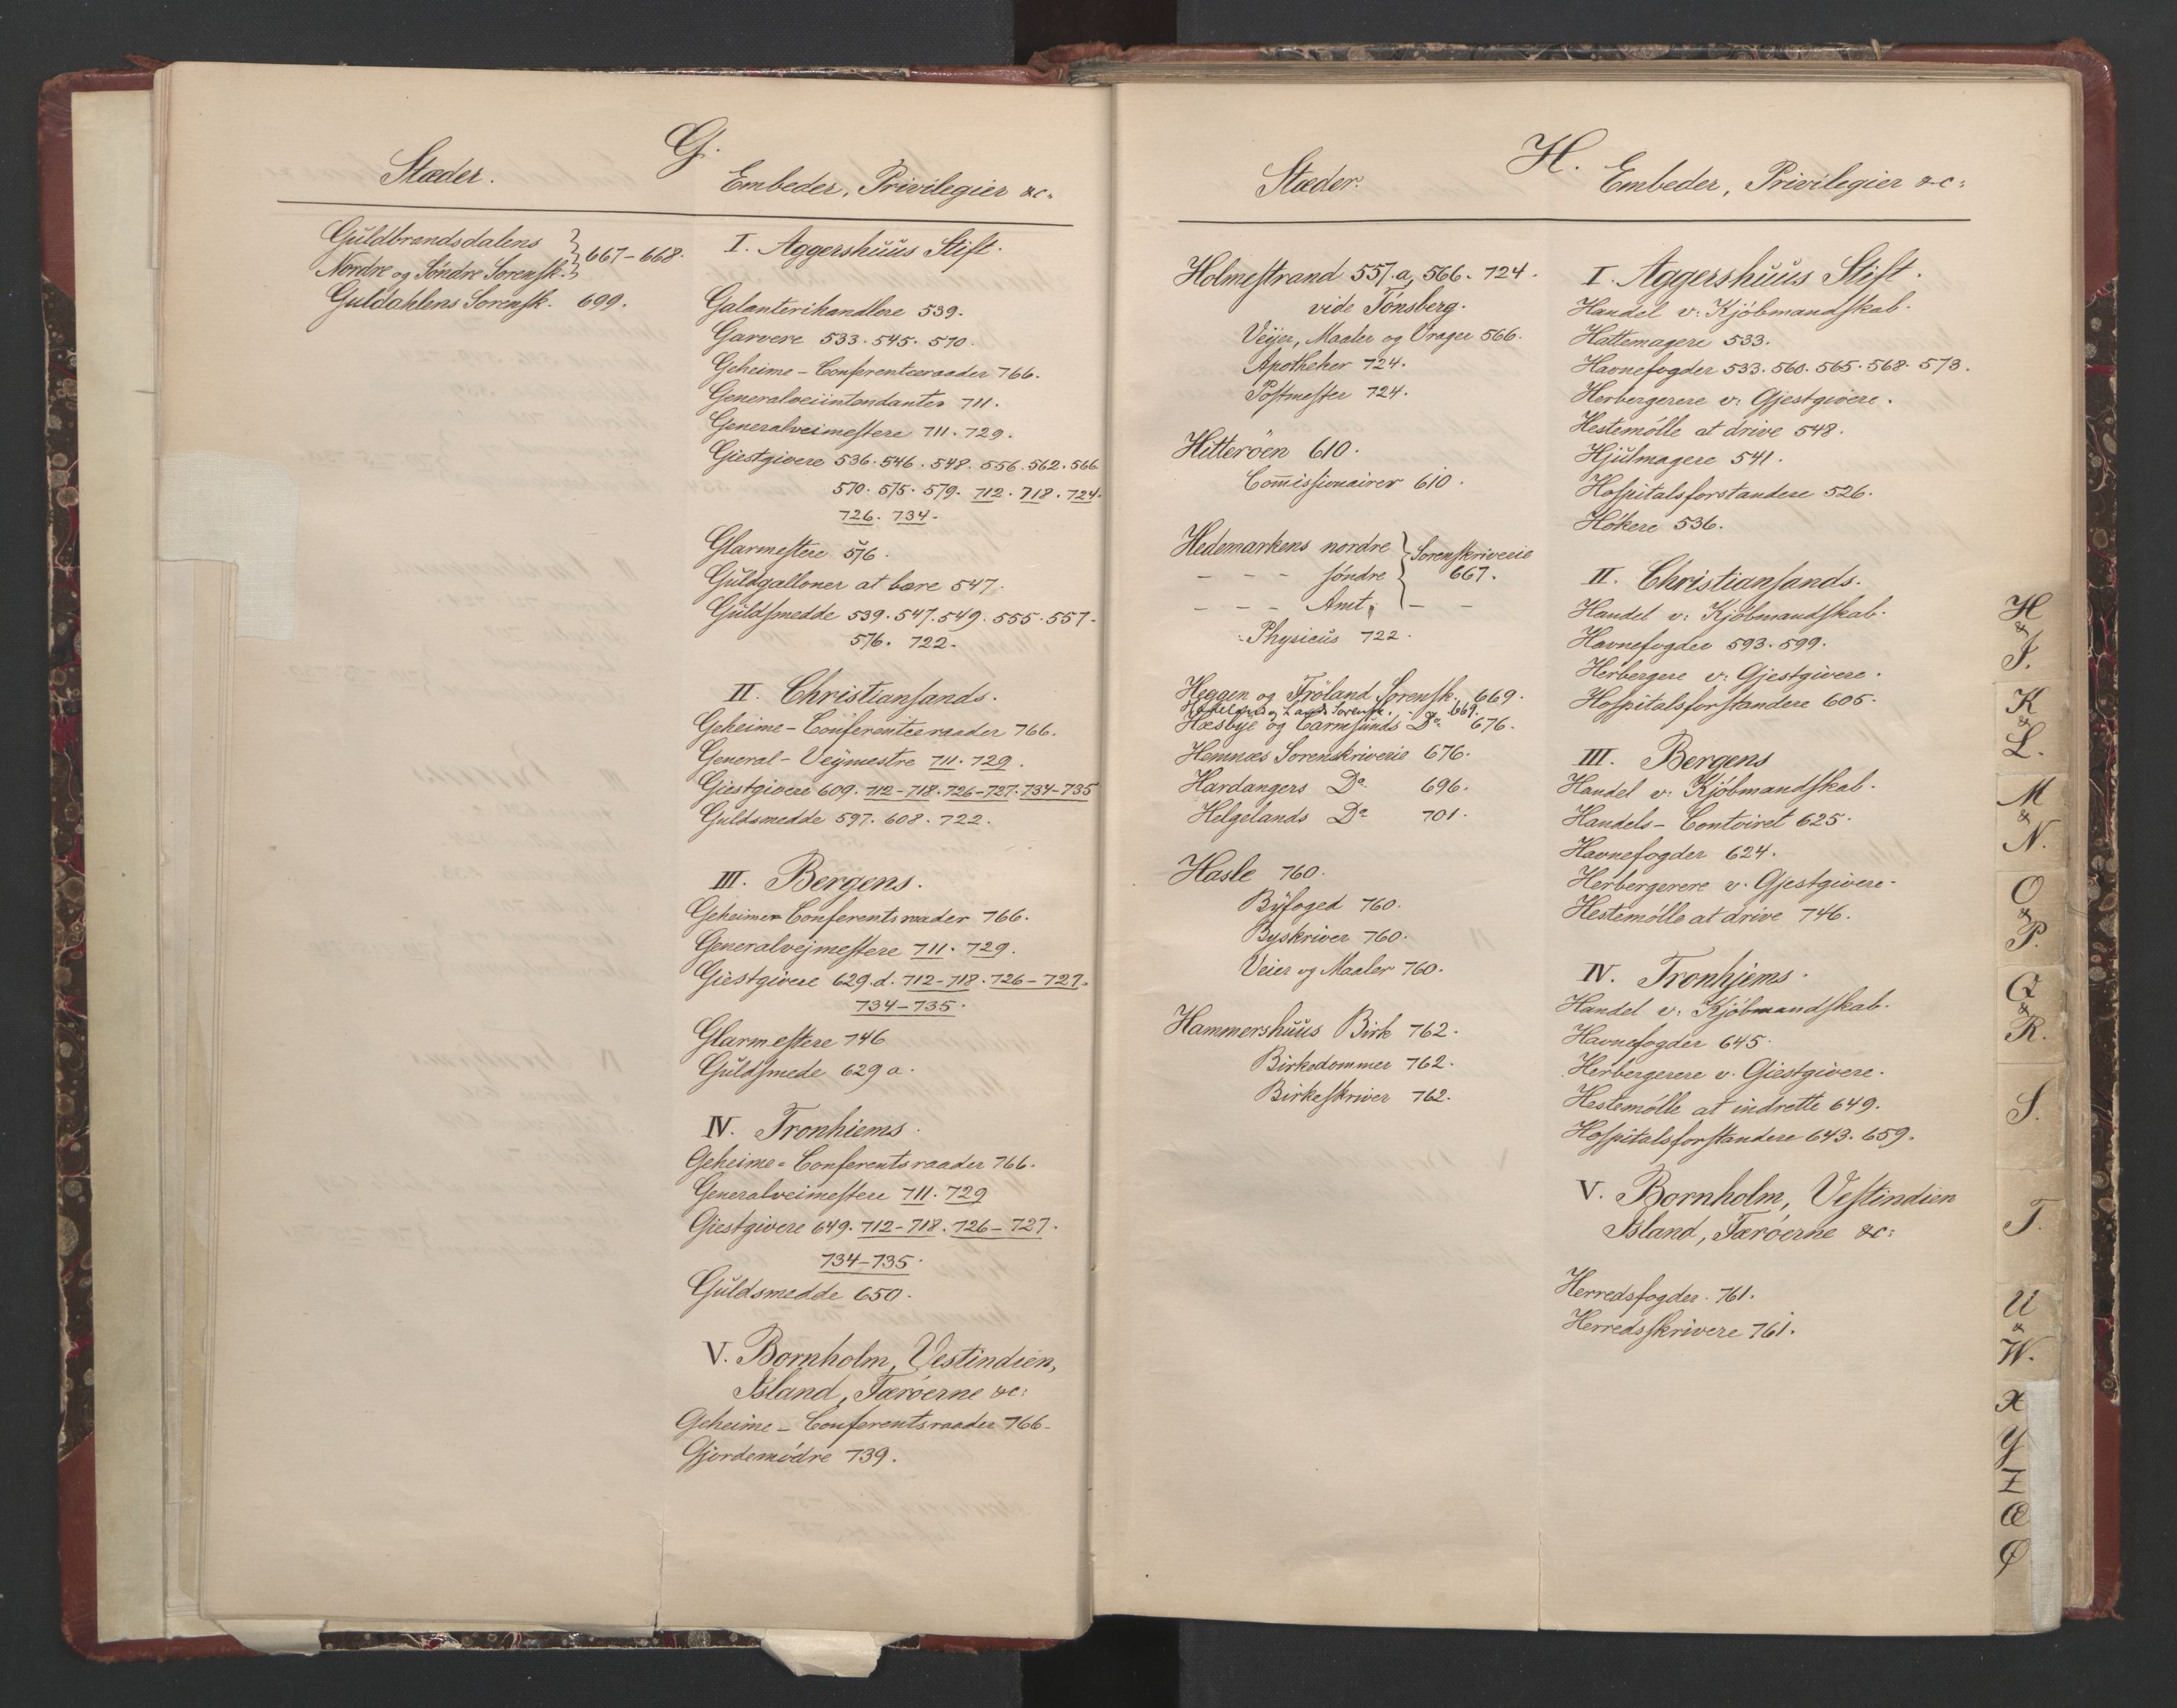 G.
Stæder.
Embeder, Privilegier &c.
Guldbrandsdalens
Nordre og Søndre Sorensk. } 667-668.
Guldahlens Sorensk. 699.
I. Aggershuus Stift.
Galanterihandlere 539.
Garvere 533. 545. 570.
Geheime-Conferentsraader 766.
Generalveiintendanter 711.
Generalveimestere 711. 729.
Giestgivere 536. 546. 548. 556. 562. 566
570. 575. 579. 712. 718. 724.
726. 734.
Glarmestere 576.
Guldgalloner at bære 547.
Guldsmedde 539. 547. 549. 555. 557.
576. 722.
II. Christiansands.
Geheime-Conferentsraader 766.
General-Veymestre 711. 729.
Giestgivere 609. 712-718. 726-727. 734-735
Guldsmedde 597. 608. 722.
III. Bergens.
Geheimer Conferentsraader 766.
Generalvejmestere 711. 729.
Giestgivere 629.d. 712-718. 726-727.
734-735.
Glarmestere 746
Guldsmede 629 a.
IV. Tronhiems.
Geheime-Conferentsraader 766.
Generalveimestere 711. 729
Giestgivere 649. 712-718. 726-727.
734-735.
Guldsmedde 650.
V. Bornholm, Vestindien,
Island, Færöerne &c:
Geheime-Conferentsraader 766-
Gjordemödre 739.
H.
Stæder.
Embeder, Privilegier &c:
Holmestrand 557.a, 566. 724.
vide Tönsberg.
Veijer, Maaler og Vrager 566.
Apotheker 724.
Postmester 724.
Hitteröen 610.
Com̄issionairer 610.
Hedemarkens nordre } Sorenskriverie
- - - söndre } 667.
- - - Amt, - -
Physicus 722.
Heggen og Fröland Sorensk. 669.
Hadelands og Lands Sorensk. 669.
Hæsbye og Carmsunds Do 676.
Hemnæs Sorenskriverie 676.
Hardangers Do 696.
Helgelands Do 701.
Hasle 760.
Byfoged 760.
Byskriver 760.
Veier og Maaler 760.
Hammershuus Birk 762.
Birkedommer 762.
Birkeskriver 762.
I. Aggershuus Stift.
Handel v: Kjöbmandskab.
Hattemagere 533.
Havnefogder 533. 560. 565. 568. 573.
Herbergerere v: Gjestgivere.
Hestemölle at drive 548.
Hjulmagere 541.
Hospitalsforstandere 526.
Hökere 536.
II. Christiansands.
Handel v: Kjöbmandskab.
Havnefogder 593. 599.
Herbergere v: Gjestgivere.
Hospitalsforstandere 605.
III. Bergens
Handel v: Kjöbmandskab.
Handels-Contoiret 625.
Havnefogder 624.
Herbergerere v. Gjestgivere.
Hestemölle at drive 746.
IV. Tronhjems.
Handel v: Kjöbmandskab.
Havnefogder 645.
Herbergerere v. Giestgivere.
Hestemölle at indrette 649.
Hospitalsforstandere 643. 659.
V. Bornholm, Vestindien
Island, Færöerne &c:
Herredsfogder 761.
Herredsskrivere 761.
H
&
I.
K
&
L.
M
&
N.
O
&
P.
Q
&
R.
S.
T.
U
&
W.
X
Y
Z
Æ
Ø